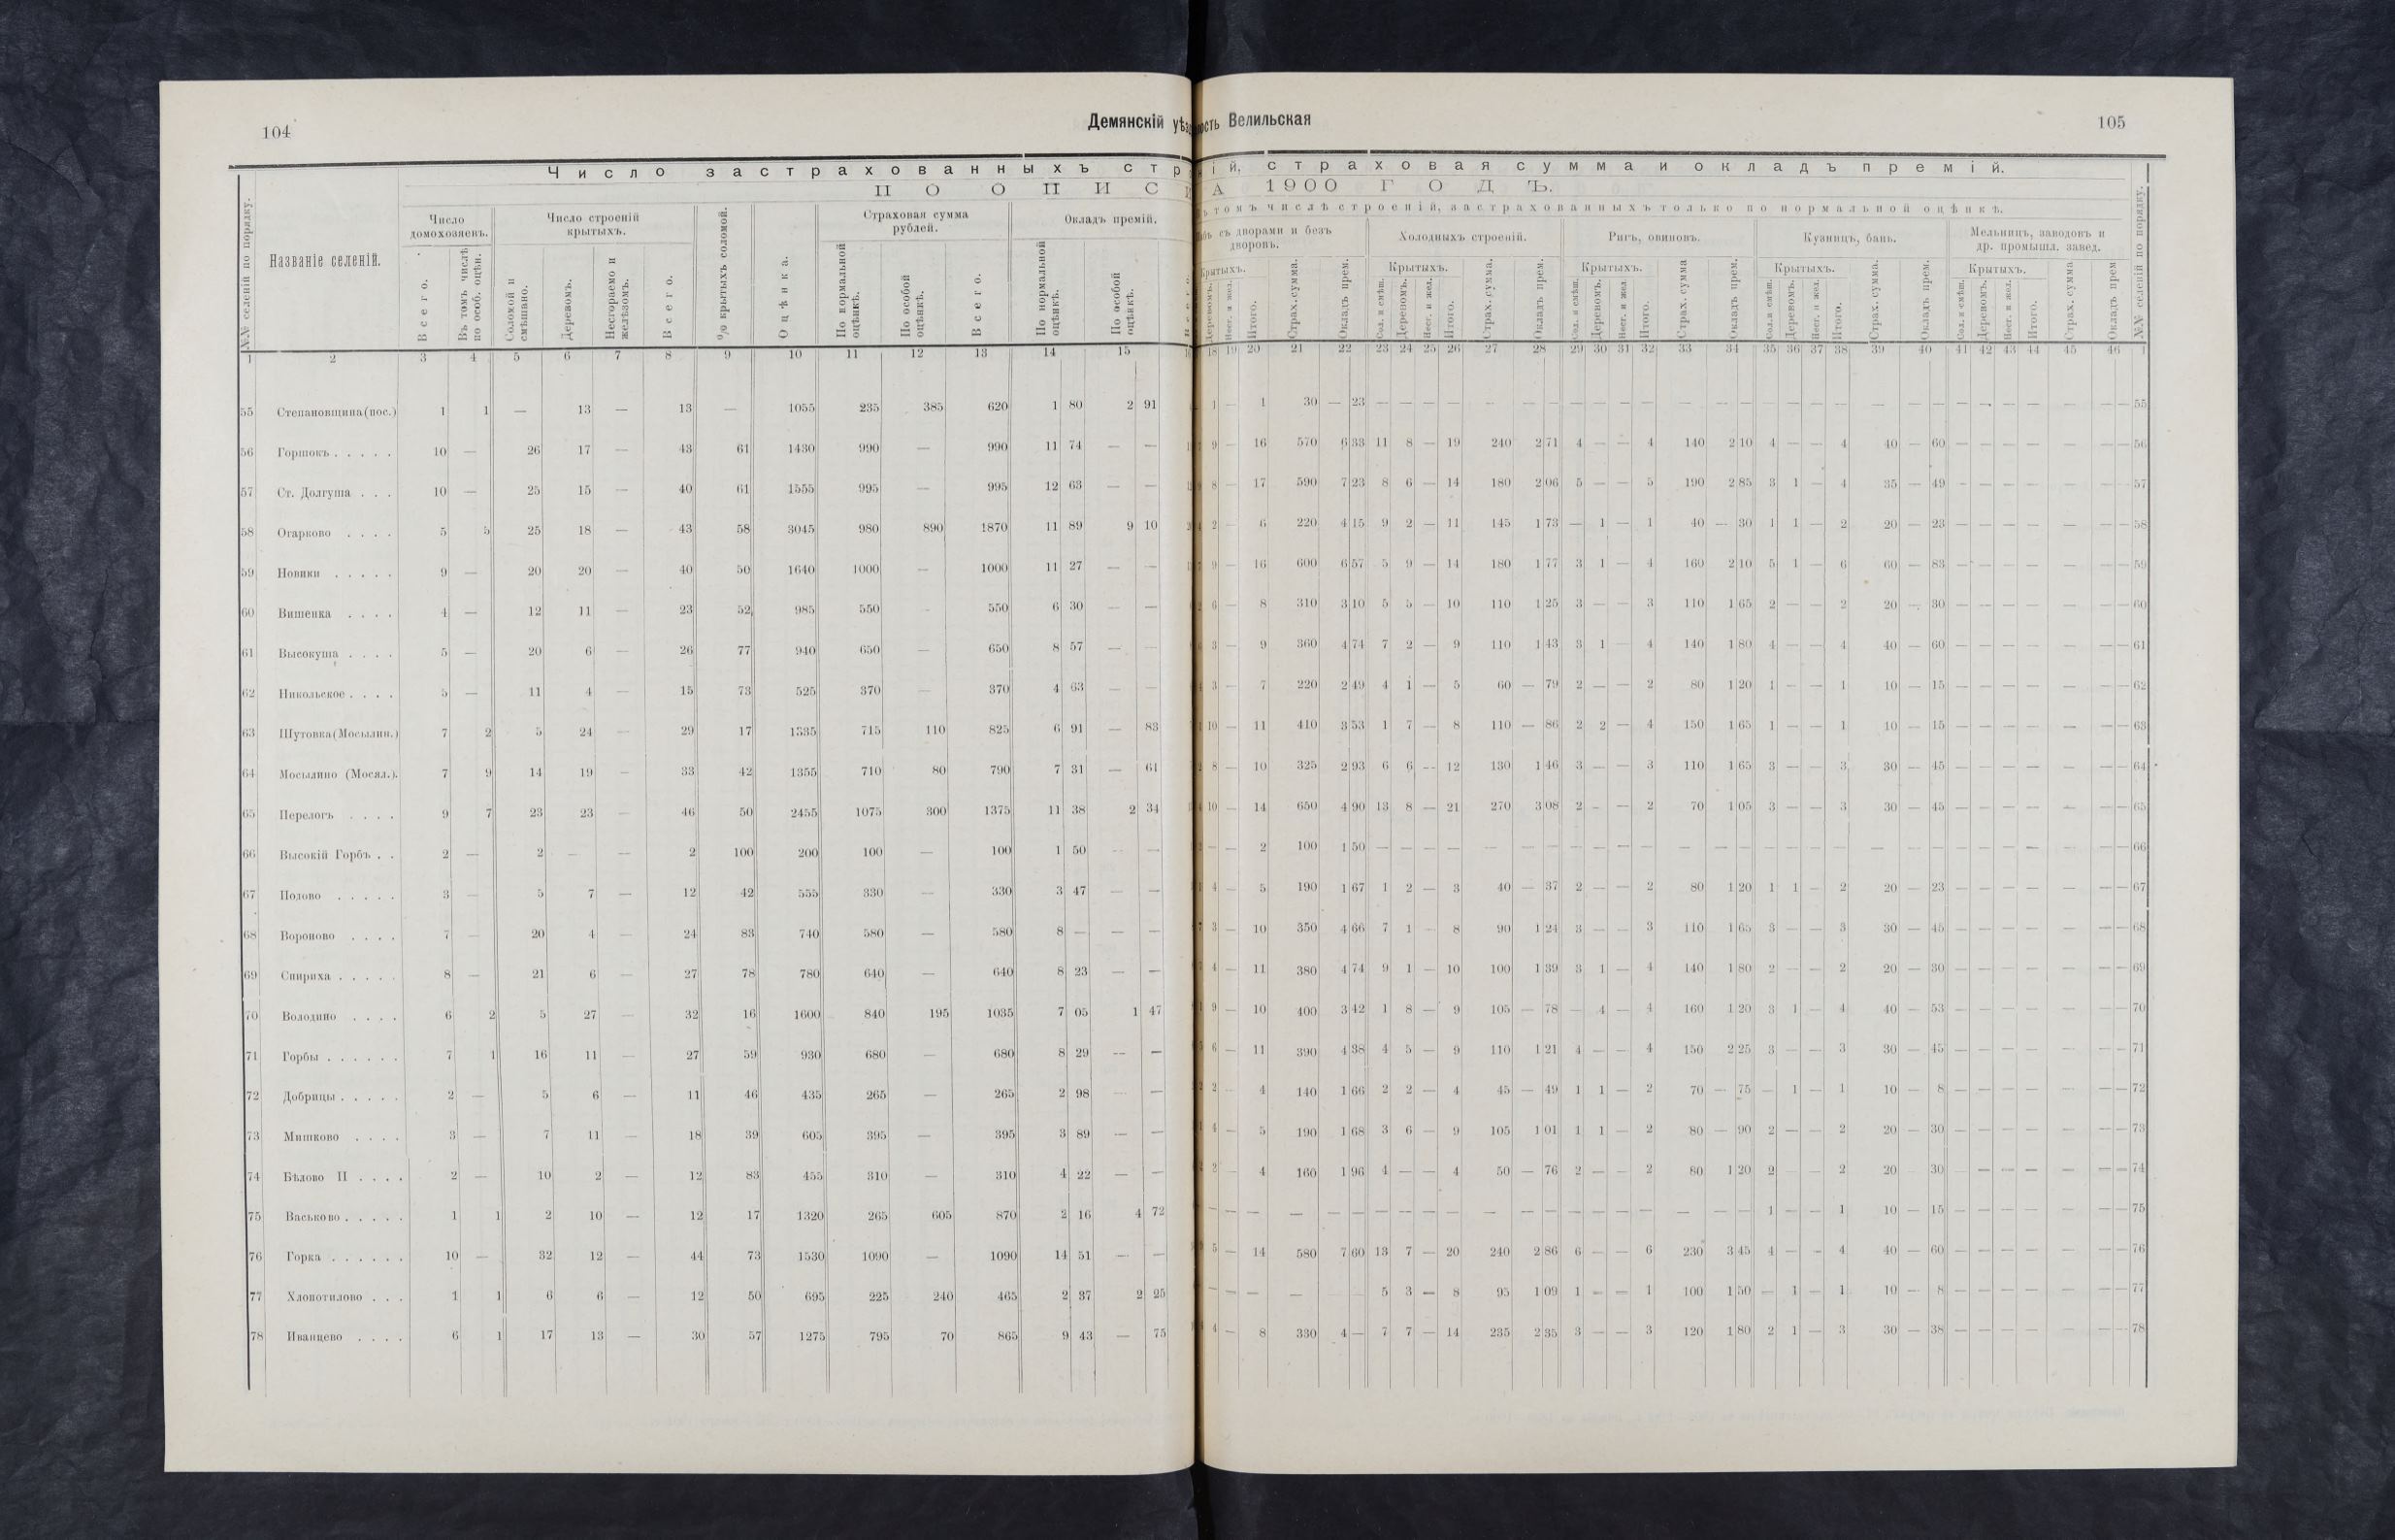 104
Демянскій уѣз
Число застрахованныхъ стр
ПО ОПИС
№№ селеній по порядку.
Названіе селеній.
Число домохозяевъ.
Число строеній крытыхъ.
% крытыхъ соломой.
Оцѣнка.
Страховая сумма рублей.
Окладъ премій.
Всего.
Въ томъ числѣ по особ. оцѣн.
Соломой и смѣшано.
Деревомъ.
Несгораемо и желѣзомъ.
Всего.
По нормальной оцѣнкѣ.
По особой оцѣнкѣ.
Всего.
По нормальной оцѣнкѣ.
По особой оцѣнкѣ.
1 2 3 4 5 6 7 8 9 10 11 12 13 14 15
55 Степановщина (пос.) 1 1 — 13 — 13 — 1055 235 385 620 1 80 2 91
56 Горшокъ . . . . . 10 — 26 17 — 43 61 1430 990 — 990 11 74 — —
57 Ст. Долгуша . . . 10 — 25 15 — 40 61 1555 995 — 995 12 63 — —
58 Огарково . . . . 5 5 25 18 — 43 58 3045 980 890 1870 11 89 9 10
59 Новики . . . . . 9 — 20 20 — 40 50 1640 1000 — 1000 11 27 — —
60 Вишенка . . . . 4 — 12 11 — 23 52 985 550 - 550 6 30 — —
61 Высокуша . . . . 5 — 20 6 — 26 77 940 650 — 650 8 57 — —
62 Никольское . . . . 5 — 11 4 — 15 73 525 370 — 370 4 63 — —
63 Шутовка (Мосылин.) 7 2 5 24 — 29 17 1335 715 110 825 6 91 — 83
64 Мосылино (Мосял.). 7 9 14 19 — 33 42 1355 710 80 790 7 31 — 61
65 Перелогъ . . . . 9 7 23 23 — 46 50 2455 1075 300 1375 11 38 2 34
66 Высокій Горбъ . . 2 — 2 — — 2 100 200 100 — 100 1 50 — —
67 Полово . . . . . 3 — 5 7 — 12 42 555 330 — 330 3 47 — —
68 Вороново . . . . 7 — 20 4 — 24 83 740 580 — 580 8 — — —
69 Спириха . . . . . 8 — 21 6 — 27 78 780 640 — 640 8 23 — —
70 Володино . . . . 6 2 5 27 — 32 16 1600 840 195 1035 7 05 1 47
71 Горбы . . . . . . 7 1 16 11 — 27 59 930 680 — 680 8 29 — —
72 Добрицы . . . . . 2 — 5 6 — 11 46 435 265 — 265 2 98 — —
73 Мишково . . . . 3 — 7 11 — 18 39 605 395 — 395 3 89 — —
74 Бѣлово II . . . . 2 — 10 2 — 12 83 455 310 — 310 4 22 — —
75 Васьково . . . . . 1 1 2 10 — 12 17 1320 265 605 870 2 16 4 72
76 Горка . . . . . . 10 — 32 12 — 44 73 1530 1090 — 1090 14 51 — —
77 Хлопотилово . . . 1 1 6 6 — 12 50 695 225 240 465 2 37 2 25
78 Иванцево . . . . 6 1 17 13 — 30 57 1275 795 70 865 9 43 — 75
ость Велильская
105
ій, страховая сумма и окладъ премій.
А 1900 ГОДЪ.
ъ томъ числѣ строеній, застрахованныхъ только по нормальной оцѣнкѣ.
бъ съ дворами и безъ дворовъ.
Холодныхъ строеній.
Ригъ, овиновъ.
Кузницъ, бань.
Мельницъ, заводовъ и др. промышл. завед.
№№ селеній по порядку.
Крытыхъ.
Крытыхъ.
Крытыхъ.
Крытыхъ.
Крытыхъ.
Деревомъ. Несг. и жел. Итого. Страх. сумма. Окладъ прем.
Сол. и смѣш. Деревомъ. Несг. и жел. Итого. Страх. сумма. Окладъ прем.
Сол. и смѣш. Деревомъ. Несг. и жел. Итого. Страх. сумма Окладъ прем.
Сол. и смѣш. Деревомъ. Несг. и жел. Итого. Страх. сумма. Окладъ прем.
Сол. и смѣш. Деревомъ. Несг. и жел. Итого. Страх. сумма Окладъ прем
18 19 20 21 22 23 24 25 26 27 28 29 30 31 32 33 34 35 36 37 38 39 40 41 42 43 44 45 46 1
1 — 1 30 — 23 — — — — — — — — — — — — — — — — — — — — — — — — — — — — 55
9 — 16 570 6 33 11 8 — 19 240 2 71 4 — — 4 140 2 10 4 — — 4 40 — 60 — — — — — — — 56
8 — 17 590 7 23 8 6 — 14 180 2 06 5 — — 5 190 2 85 3 1 — 4 35 — 49 — — — — — — — 57
2 — 6 220 4 15 9 2 — 11 145 1 73 — 1 — 1 40 — 30 1 1 — 2 20 — 23 — — — — — — — 58
9 — 16 600 6 57 5 9 — 14 180 1 77 3 1 — 4 160 2 10 5 1 — 6 60 — 83 — — — — — — — 59
6 — 8 310 3 10 5 5 — 10 110 1 25 3 — — 3 110 1 65 2 — — 2 20 — 30 — — — — — — — 60
3 — 9 360 4 74 7 2 — 9 110 1 43 3 1 — 4 140 1 80 4 — — 4 40 — 60 — — — — — — — 61
3 — 7 220 2 49 4 1 — 5 60 — 79 2 — — 2 80 1 20 1 — — 1 10 — 15 — — — — — — — 62
10 — 11 410 3 53 1 7 — 8 110 — 86 2 2 — 4 150 1 65 1 — — 1 10 — 15 — — — — — — — 63
8 — 10 325 2 93 6 6 — 12 130 1 46 3 — — 3 110 1 65 3 — — 3 30 — 45 — — — — — — — 64
10 — 14 650 4 90 13 8 — 21 270 3 08 2 — — 2 70 1 05 3 — — 3 30 — 45 — — — — — — — 65
— — 2 100 1 50 — — — — — — — — — — — — — — — — — — — — — — — — — — — — 66
4 — 5 190 1 67 1 2 — 3 40 — 37 2 — — 2 80 1 20 1 1 — 2 20 — 23 — — — — — — — 67
3 — 10 350 4 66 7 1 - 8 90 1 24 3 — — 3 110 1 65 3 — — 3 30 — 45 — — — — — — — 68
4 — 11 380 4 74 9 1 — 10 100 1 39 3 1 — 4 140 1 80 2 — — 2 20 — 30 — — — — — — — 69
9 — 10 400 3 42 1 8 — 9 105 — 78 — 4 — 4 160 1 20 3 1 — 4 40 — 53 — — — — — — — 70
6 — 11 390 4 38 4 5 — 9 110 1 21 4 — — 4 150 2 25 3 — — 3 30 — 45 — — — — — — — 71
2 — 4 140 1 66 2 2 — 4 45 — 49 1 1 — 2 70 — 75 — 1 — 1 10 — 8 — — — — — — — 72
4 — 5 190 1 68 3 6 — 9 105 1 01 1 1 — 2 80 — 90 2 — — 2 20 — 30 — — — — — — — 73
2 — 4 160 1 96 4 — — 4 50 — 76 2 — — 2 80 1 20 2 — 2 20 30 — — — — — — — 74
— — — — — — — — — — — — — — — — — — — — 1 — — 1 10 — 15 — — — — — — — 75
5 — 14 580 7 60 13 7 — 20 240 2 86 6 — — 6 230 3 45 4 — — 4 40 — 60 — — — — — — — 76
— — — — 5 3 — 8 95 1 09 1 — — 1 100 1 50 — 1 — 1 10 — 8 — — — — — — — 77
4 — 8 330 4 — 7 7 — 14 235 2 35 3 — — 3 120 1 80 2 1 — 3 30 — 38 — — — — — — — 78